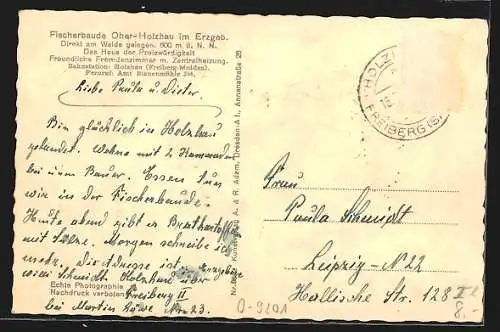 Fischerbaude Ober-Holzhau im Erzgeb.
Direkt am Walde gelegen. 800 m ü. N. N.
Das Haus der Preiswürdigkeit
Freundliche Fremdenzimmer m. Zentralheizung.
Bahnstation: Holzhau (Freiberg-Moldau).
Fernruf: Amt Bienenmühle 294.
Liebe Paula u. Dieter.
Bin glücklich in Holzhau
gelandet. Wohne mit 2 Kameraden
bei einem Bauer. Essen tun
wir in der Fischerbaude.
Heute abend gibt es Bratkartoffeln
mit Sülze. Morgen schreibe ich
mehr. Die Adresse ist
Willi Schmidt Holzhau Erzgebirge
über
Freiberg II
bei Martin Löwe Nr. 23.
Echte Photographie
Nachdruck verboten
A. & R. Adam, Dresden-A. 1, Annenstraße 29
HOLZHAU
FREIBERG (S)
Frau
Paula Schmidt
Leipzig-N22
Hallische Str. 128 II
8.-
O-9201